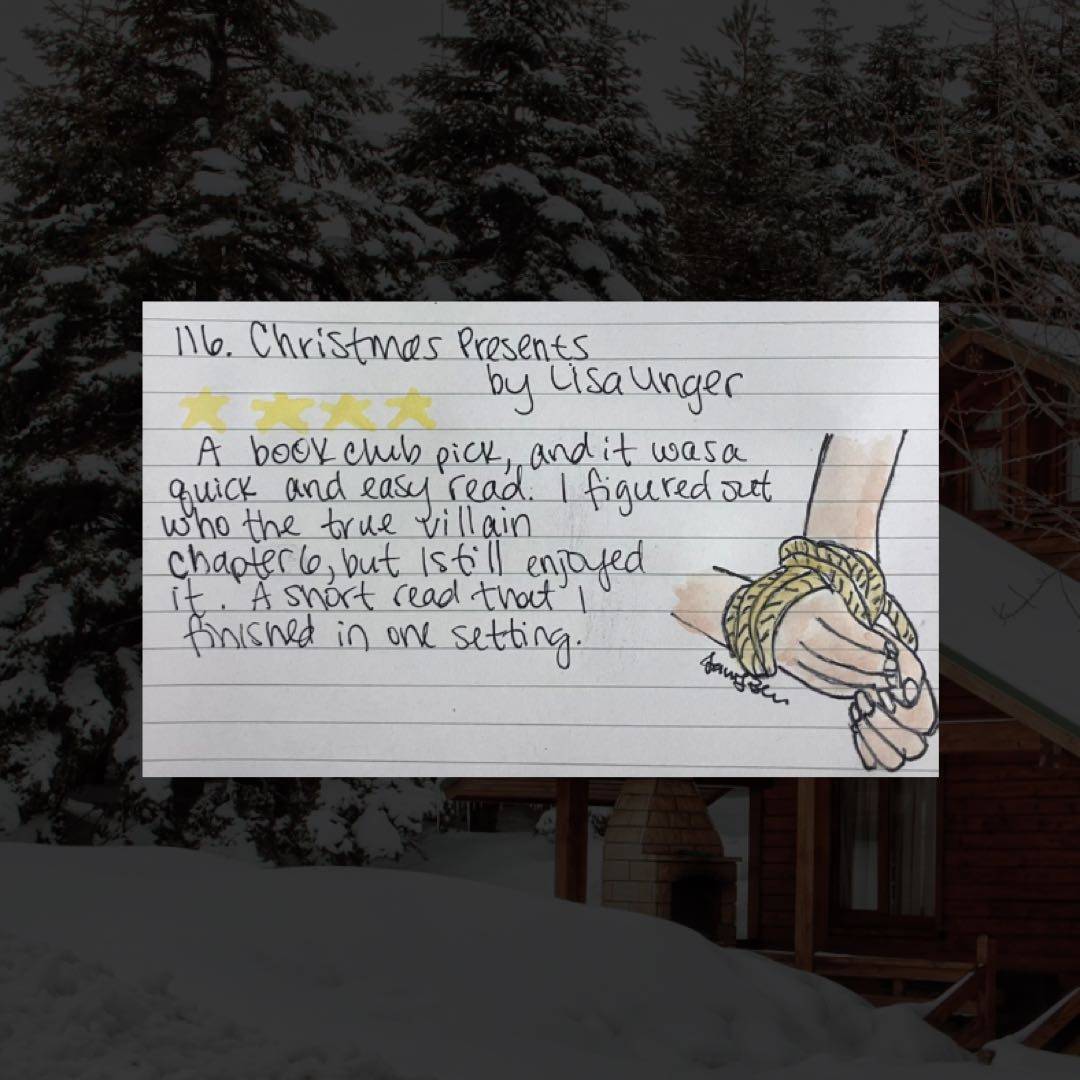 116. Christmas Presents
by Lisa Unger
A book club pick, and it was a
quick and easy read. I figured out
who the true villain
chapter 6, but I still enjoyed
it. A short read that I
finished in one setting.